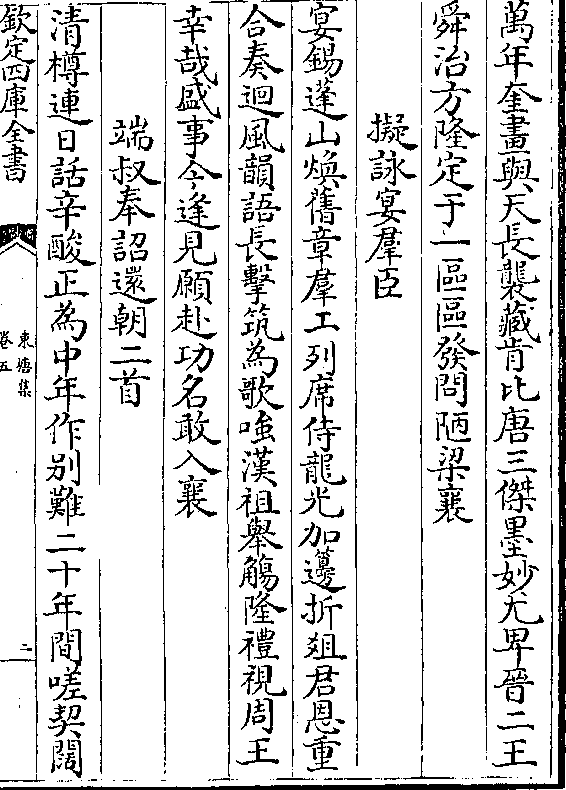 萬年奎畫與天長襲藏肯比唐三傑墨妙尤卑晉二王
舜治方隆定于一區區發問陋梁襄
擬詠宴羣臣
宴錫蓬山煥舊章羣工列席侍龍光加籩折俎君恩重
合奏迴風韻語長擊筑為歌嗤漢祖舉觴隆禮視周王
幸哉盛事今逢見願赴功名敢入襄
端叔奉詔還朝二首
清樽連日話辛酸正為中年作别難二十年間嗟契闊
欽定四庫全書
東塘集
卷五
二